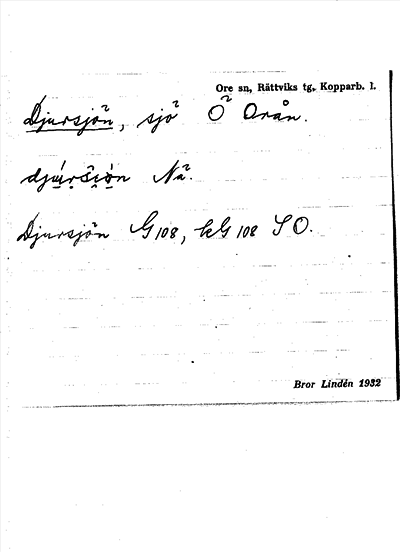 Ore sn, Rättviks tg, Kopparb. l.
Djursjön, sjö Ö Orån.
Nä.
Djursjön G 108, kG 108 SO.
Bror Lindén 1932